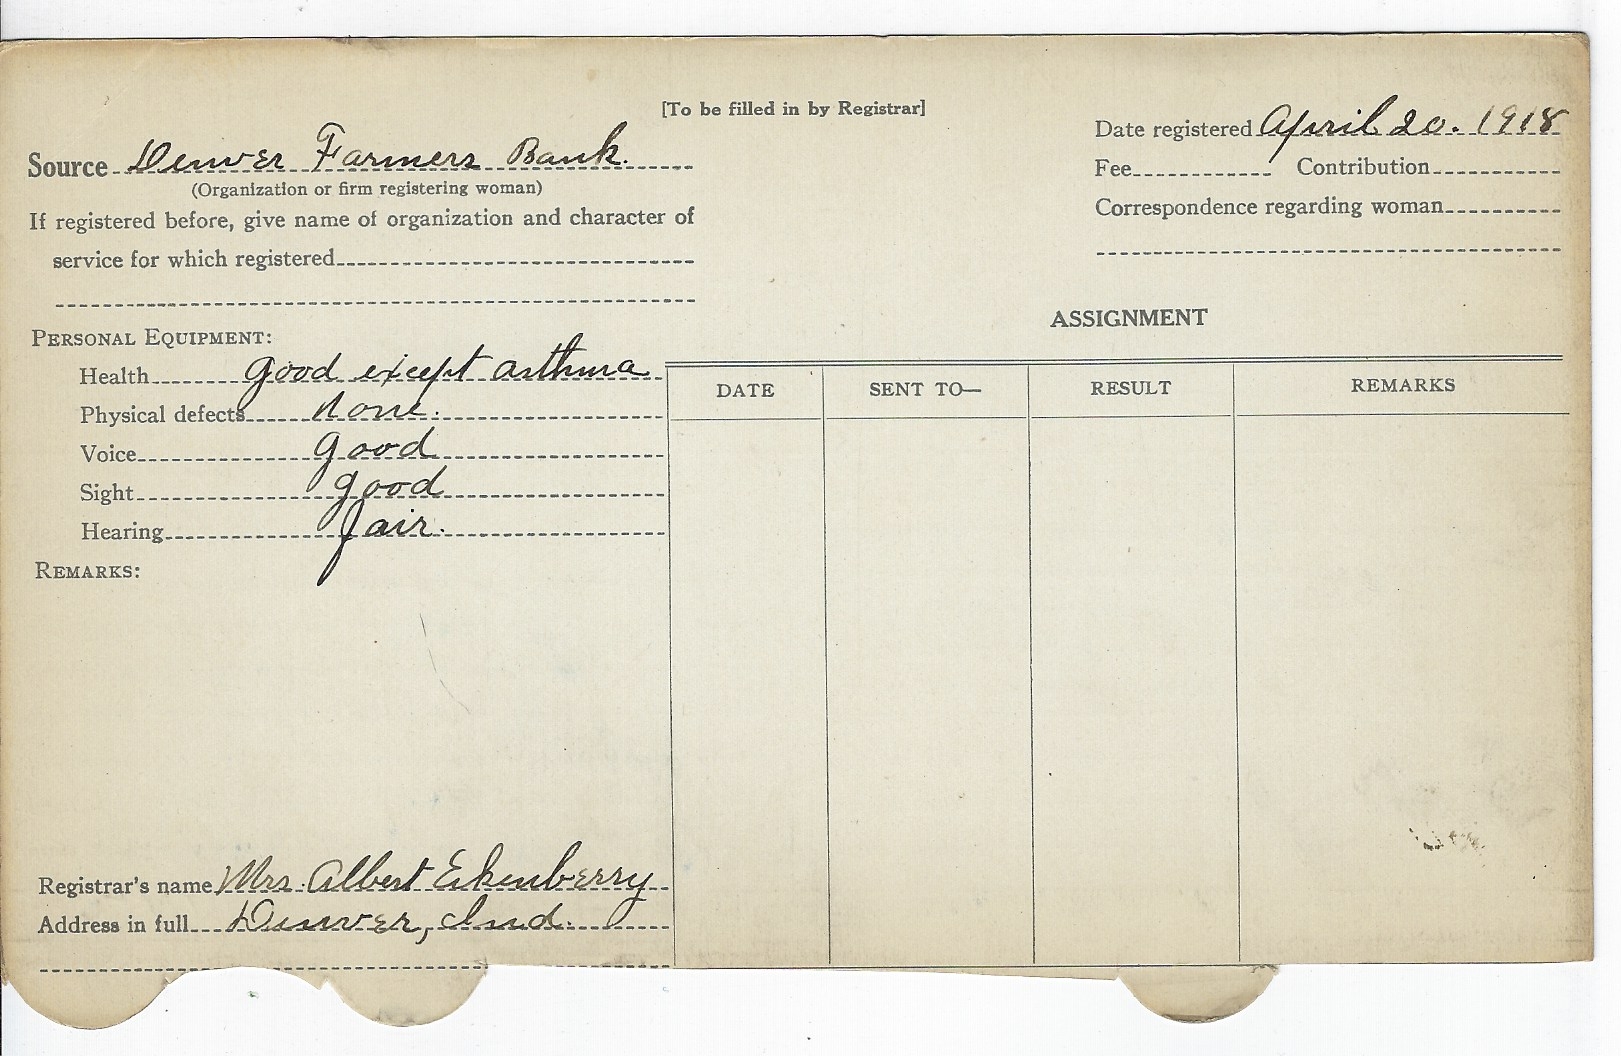 [To be filled in by Registrar]
Date registered April 20. 1918
Source Denver Farmers Bank.
(Organization or firm registering woman)
Fee Contribution
If registered before, give name of organization and character of
service for which registered
Correspondence regarding woman
ASSIGNMENT
PERSONAL EQUIPMENT:
Health good except asthma
Physical defects none.
Voice good
Sight good
Hearing fair.
REMARKS:
DATE SENT TO— RESULT REMARKS
Registrar's name Mrs. Albert Eikenberry
Address in full Denver, Ind.